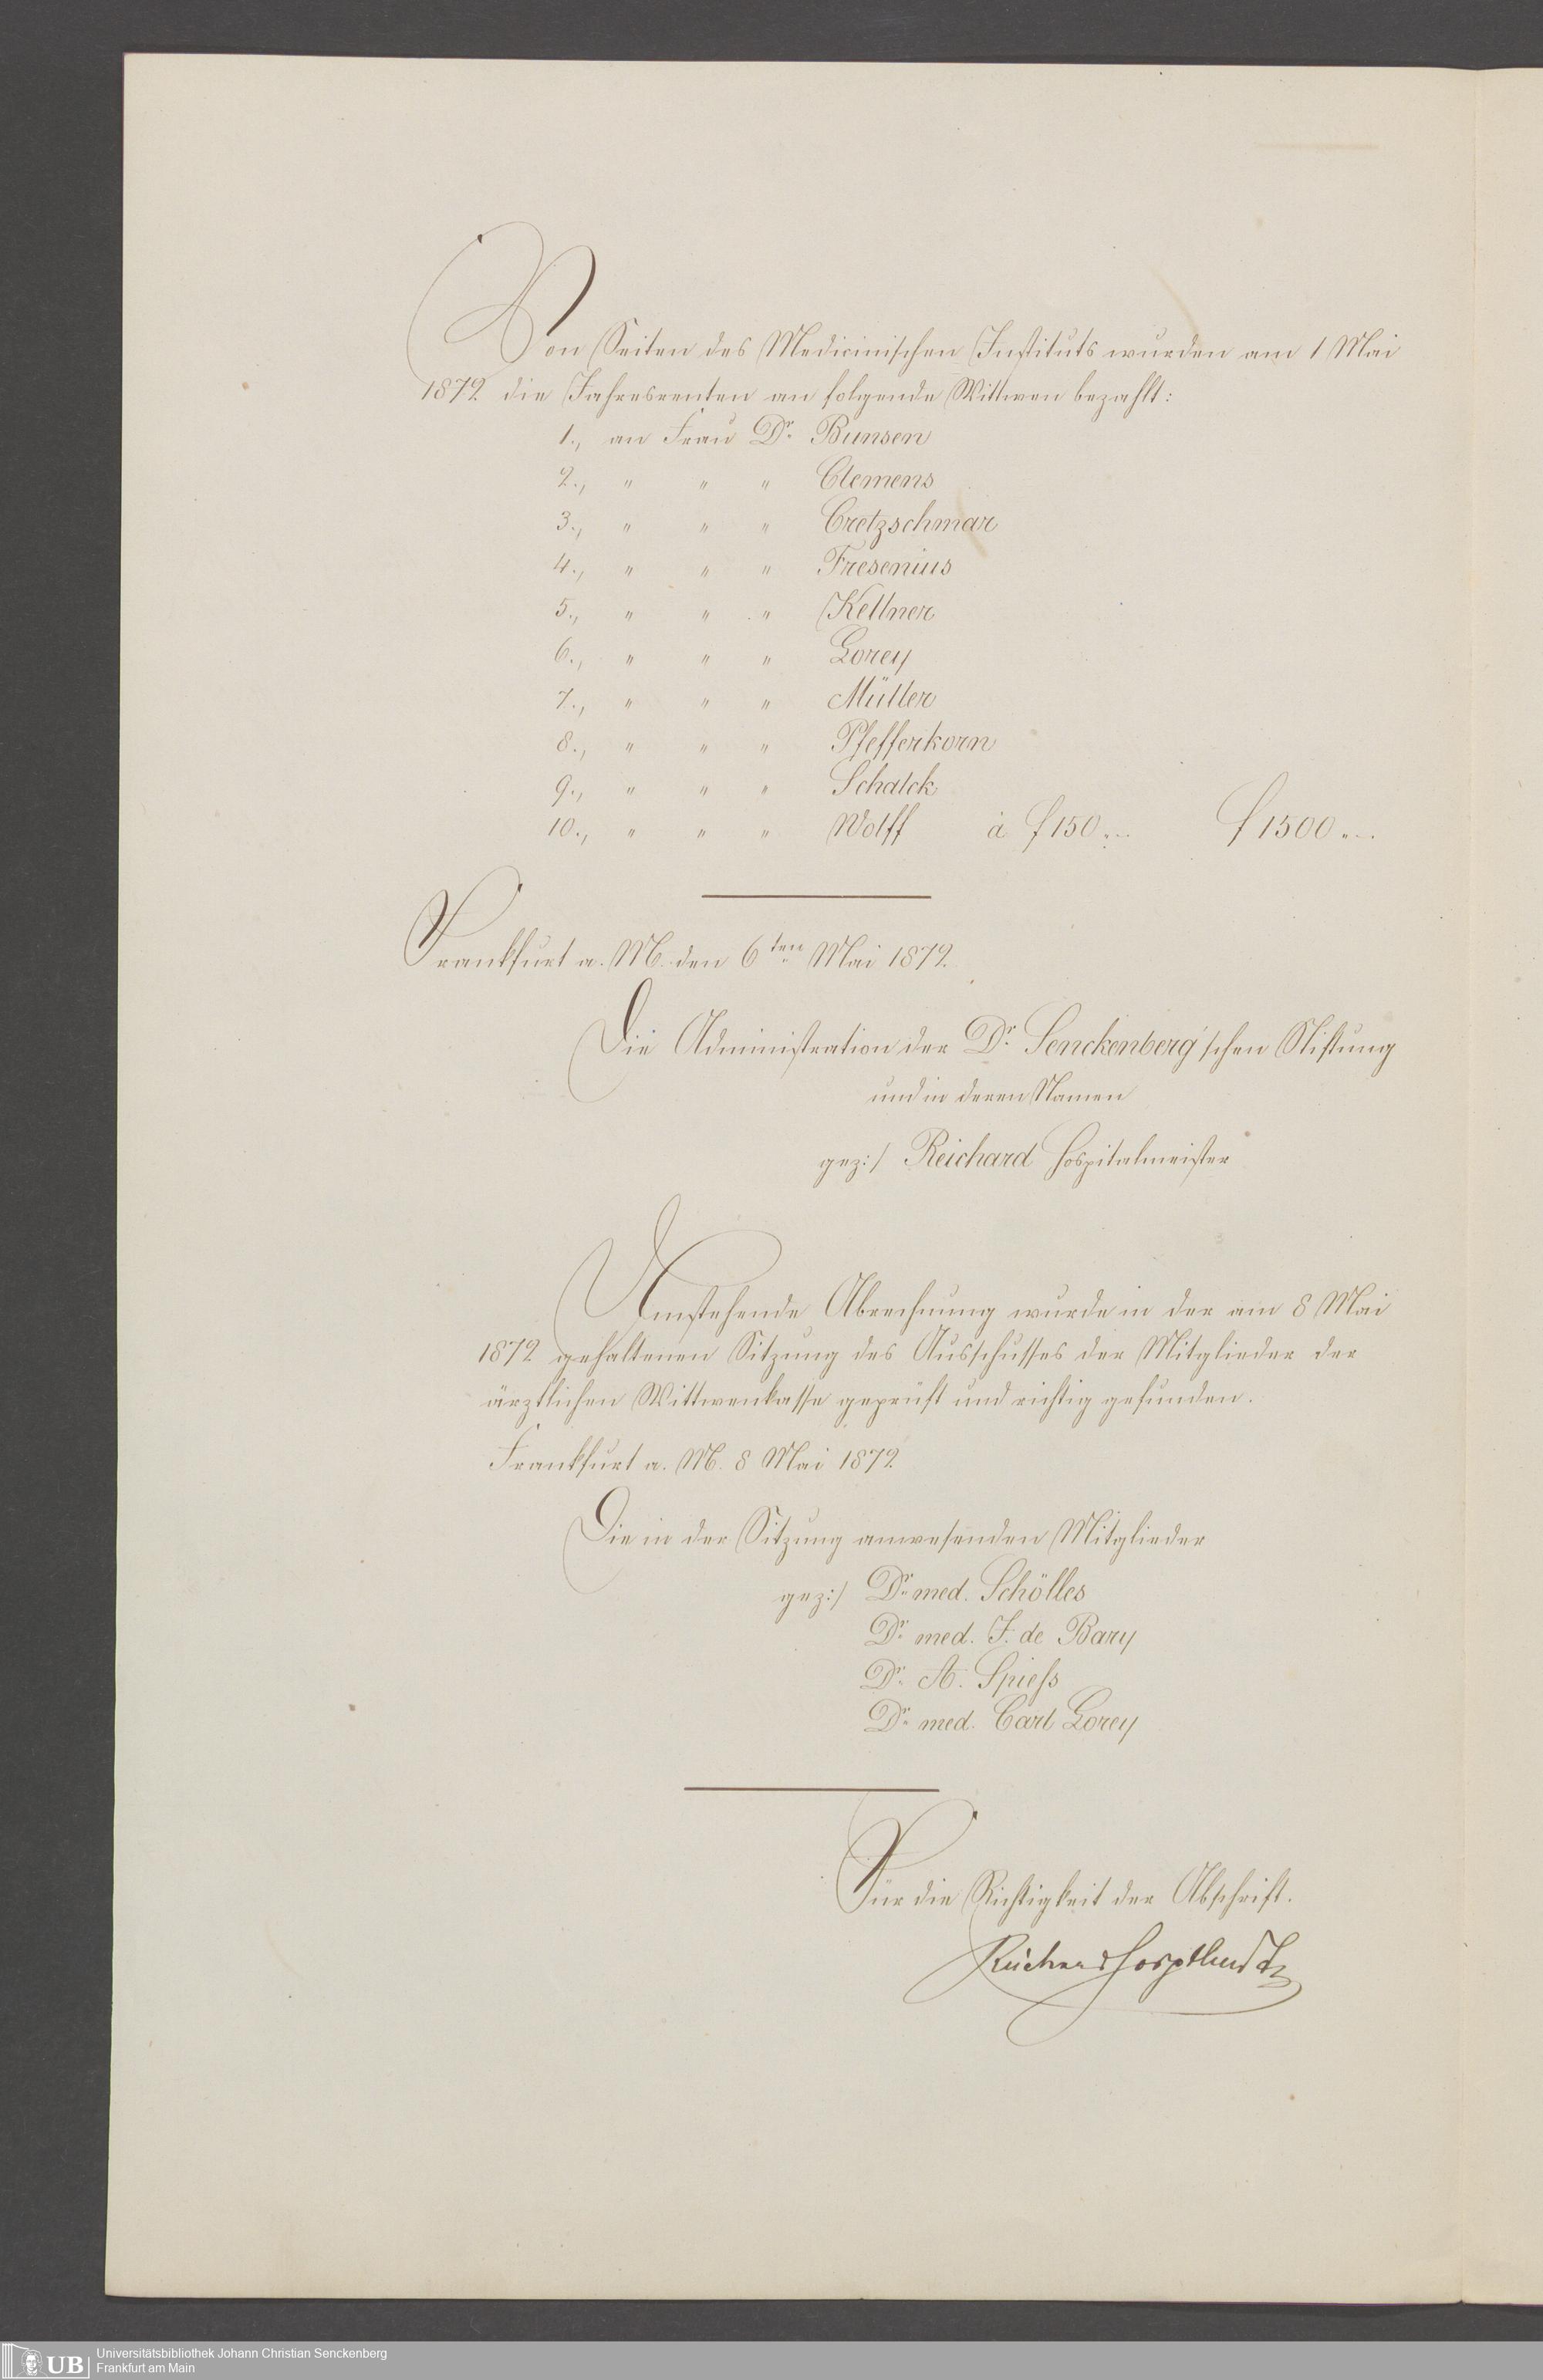 Von Seiten des Medicinischen Instituts wurden am 1 Mai
1872 die Jahresrenten an folgende Wittwen bezahlt:
1., an Frau Dr. Bunsen
2., " " " Clemens
3., " " " Cretzschmar
4., " " " Fresenius
5., " " " Kellner
6., " " " Lorey
7., " " " Müller
8., " " " Pfefferkorn
9., " " " Schalck
10., " " " Wolff à f 150.-- f 1500.--
Frankfurt a. M. den 6ten Mai 1872.
Die Administration der Dr. Senckenberg'schen Stiftung
und in deren Namen
gez:/ Reichard Hospitalmeister
Umstehende Abrechnung wurde in der am 8 Mai
1872 gehaltenen Sitzung des Ausschusses der Mitglieder der
ärztlichen Wittwenkasse geprüft und richtig gefunden.
Frankfurt a. M. 8 Mai 1872
Die in der Sitzung anwesenden Mitglieder
gez:/ Dr. med. Schölles
Dr. med. J. de Bary
Dr. A. Spiess
Dr. med. Carl Lorey
Für die Richtigkeit der Abschrift.
Reichard
UB Universitätsbibliothek Johann Christian Senckenberg
Frankfurt am Main